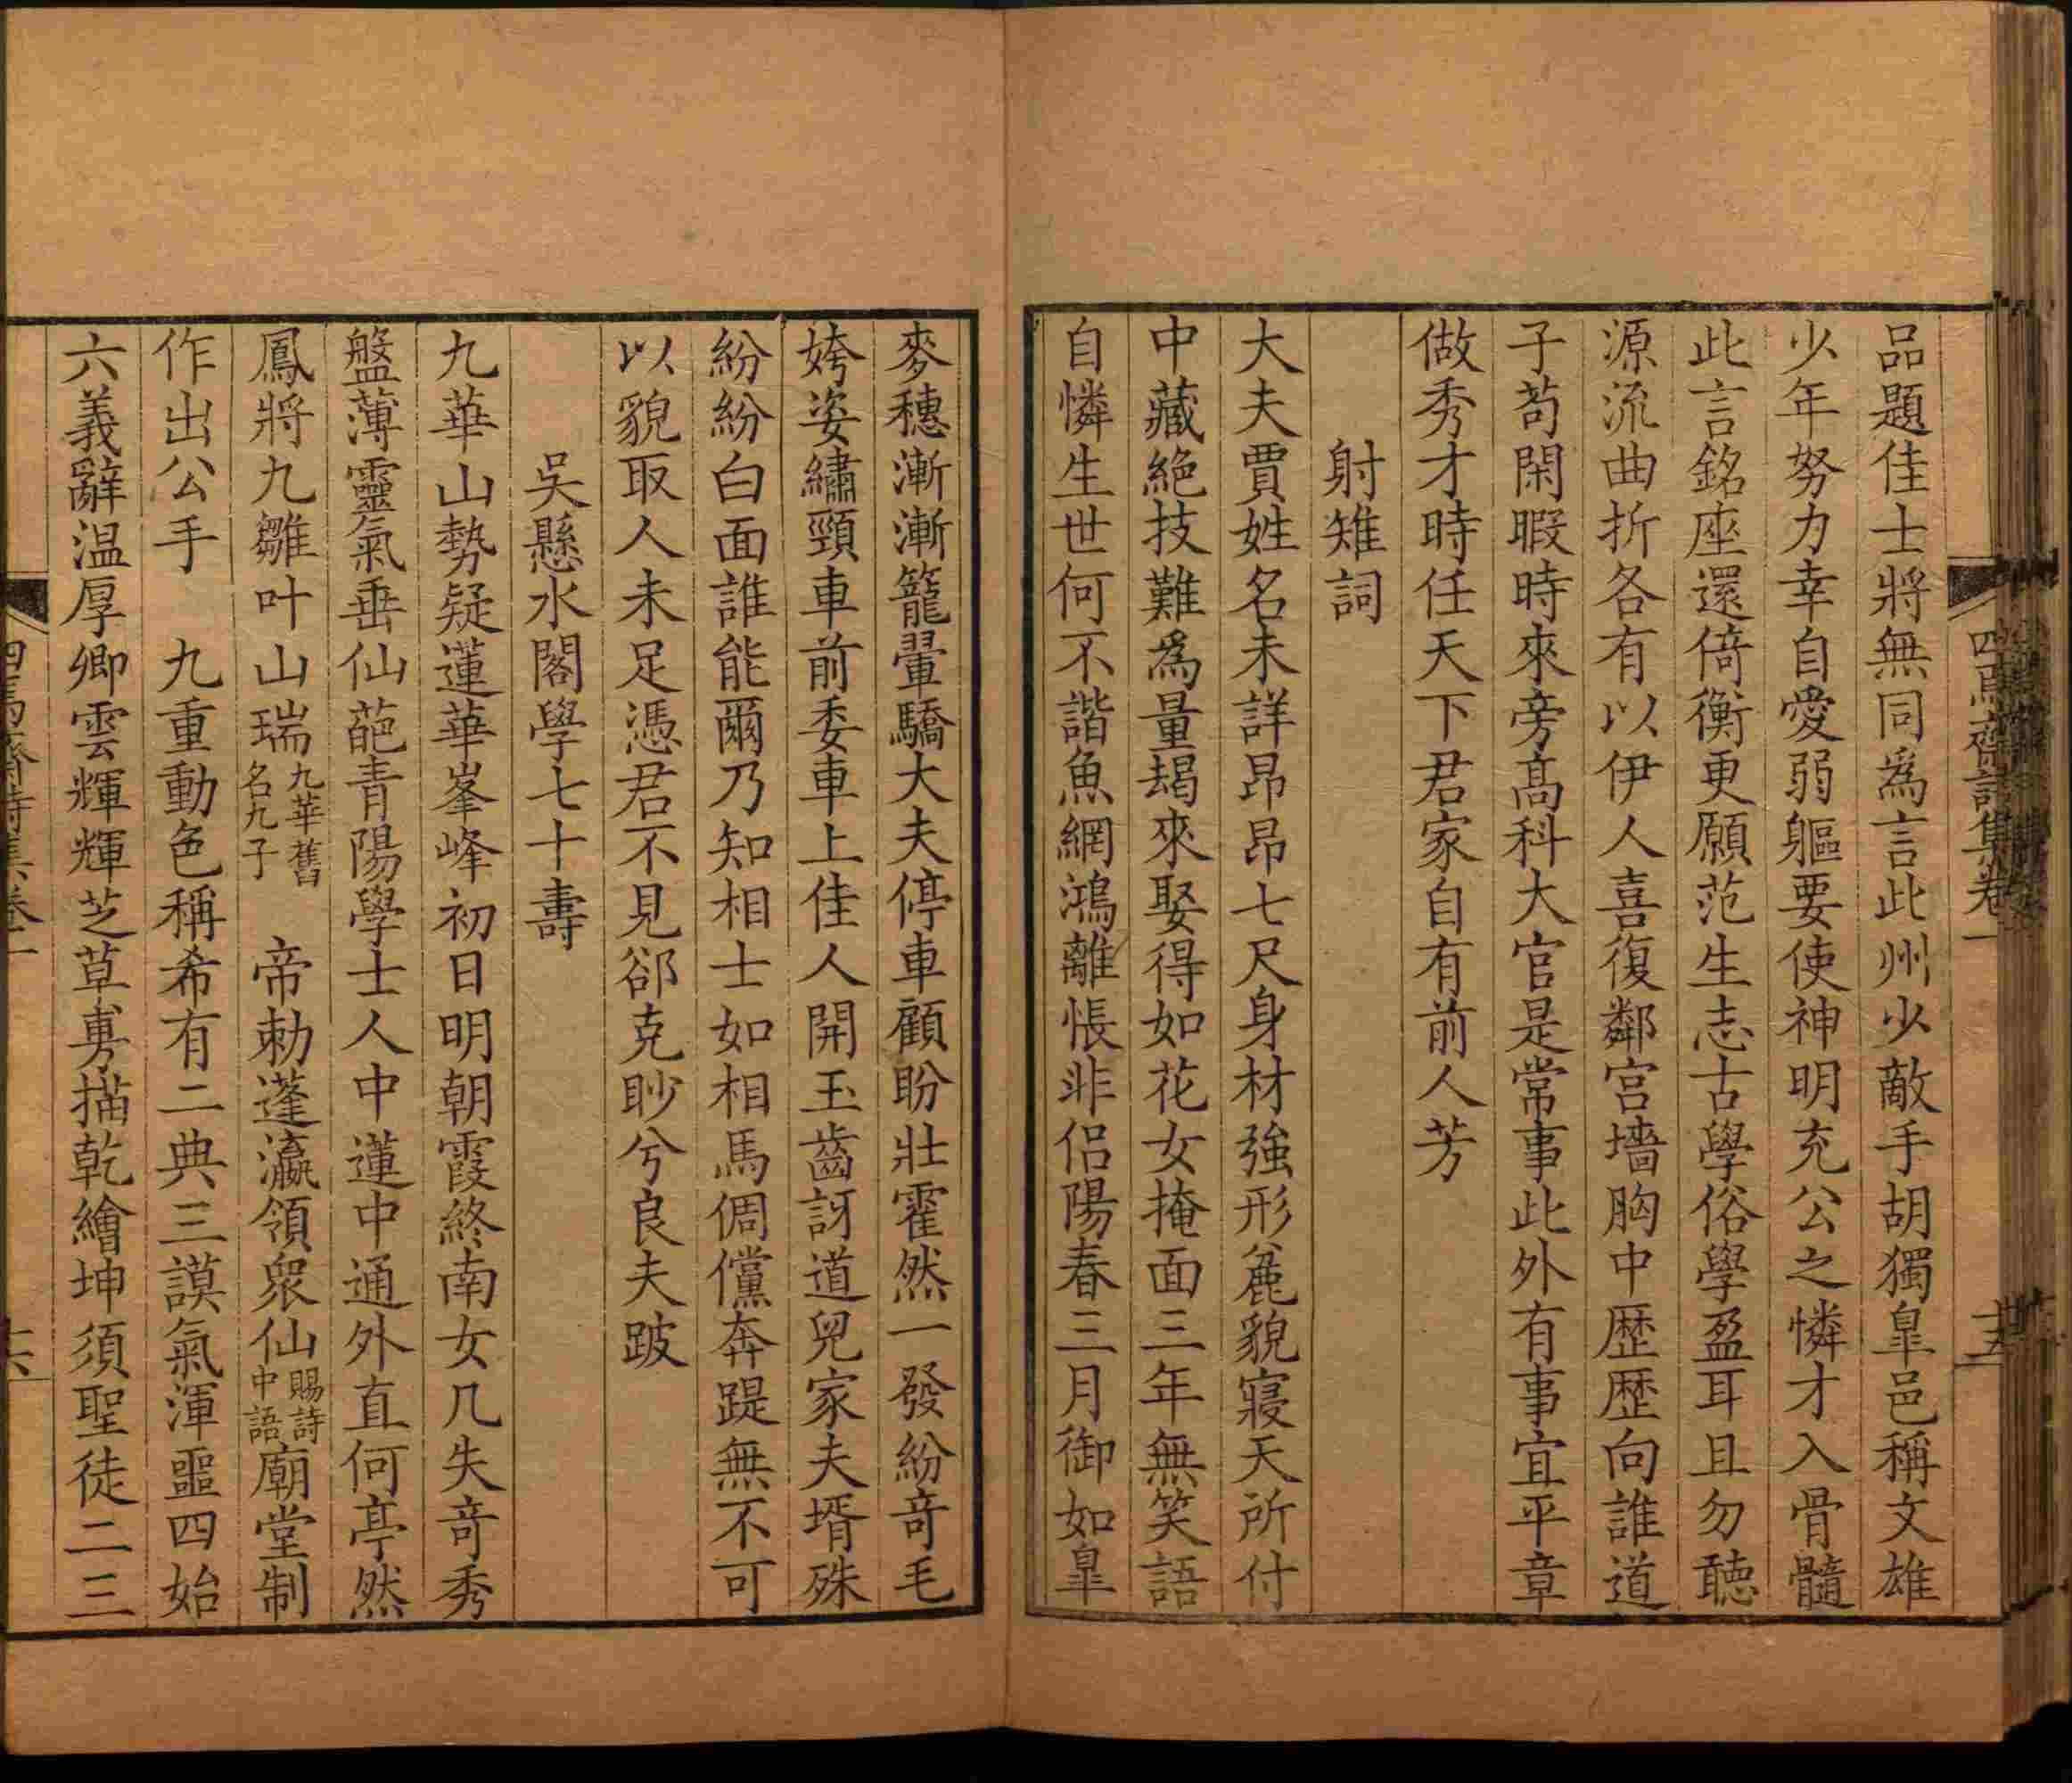 品題佳士將無同爲言此州少敵手胡獨皐邑稱文雄
少年努力幸自愛弱軀要使神明充公之憐才入骨髓
此言銘座還倚衡更願范生志古學俗學盈耳且勿聽
源流曲折各有以伊人喜復鄰宫墻胸中歴歴向誰道
子苟閑暇時來旁髙科大官是常事此外有事宜平章
做秀才時任天下君家自有前人芳
射雉詞
大夫賈姓名未詳昂昂七尺身材強形麄貌寢天所付
中藏絶技難爲量朅來娶得如花女掩面三年無笑語
自憐生世何不諧魚網鴻離悵非侣陽春三月御如皐
四焉齋詩集卷一
十五
麥穗漸漸籠翬驕大夫停車顧盼壯霍然一發紛竒毛
姱姿繡頸車前委車上佳人開玉齒訝道兒家夫壻殊
紛紛白面誰能爾乃知相士如相馬倜儻奔踶無不可
以貌取人未足憑君不見郤克眇兮良夫跛
吳懸水閣學七十壽
九華山勢疑蓮華峯峰初日明朝霞終南女几失竒秀
盤薄靈氣垂仙葩青陽學士人中蓮中通外直何亭然
鳳將九雛叶山瑞九華舊名九子 帝勅蓬瀛領衆仙賜詩中語廟堂制
作出公手 九重動色稱希有二典三謨氣渾噩四始
六義辭温厚卿雲輝輝芝草旉描乾繪坤須聖徒二三
四焉齋詩集卷一
十六